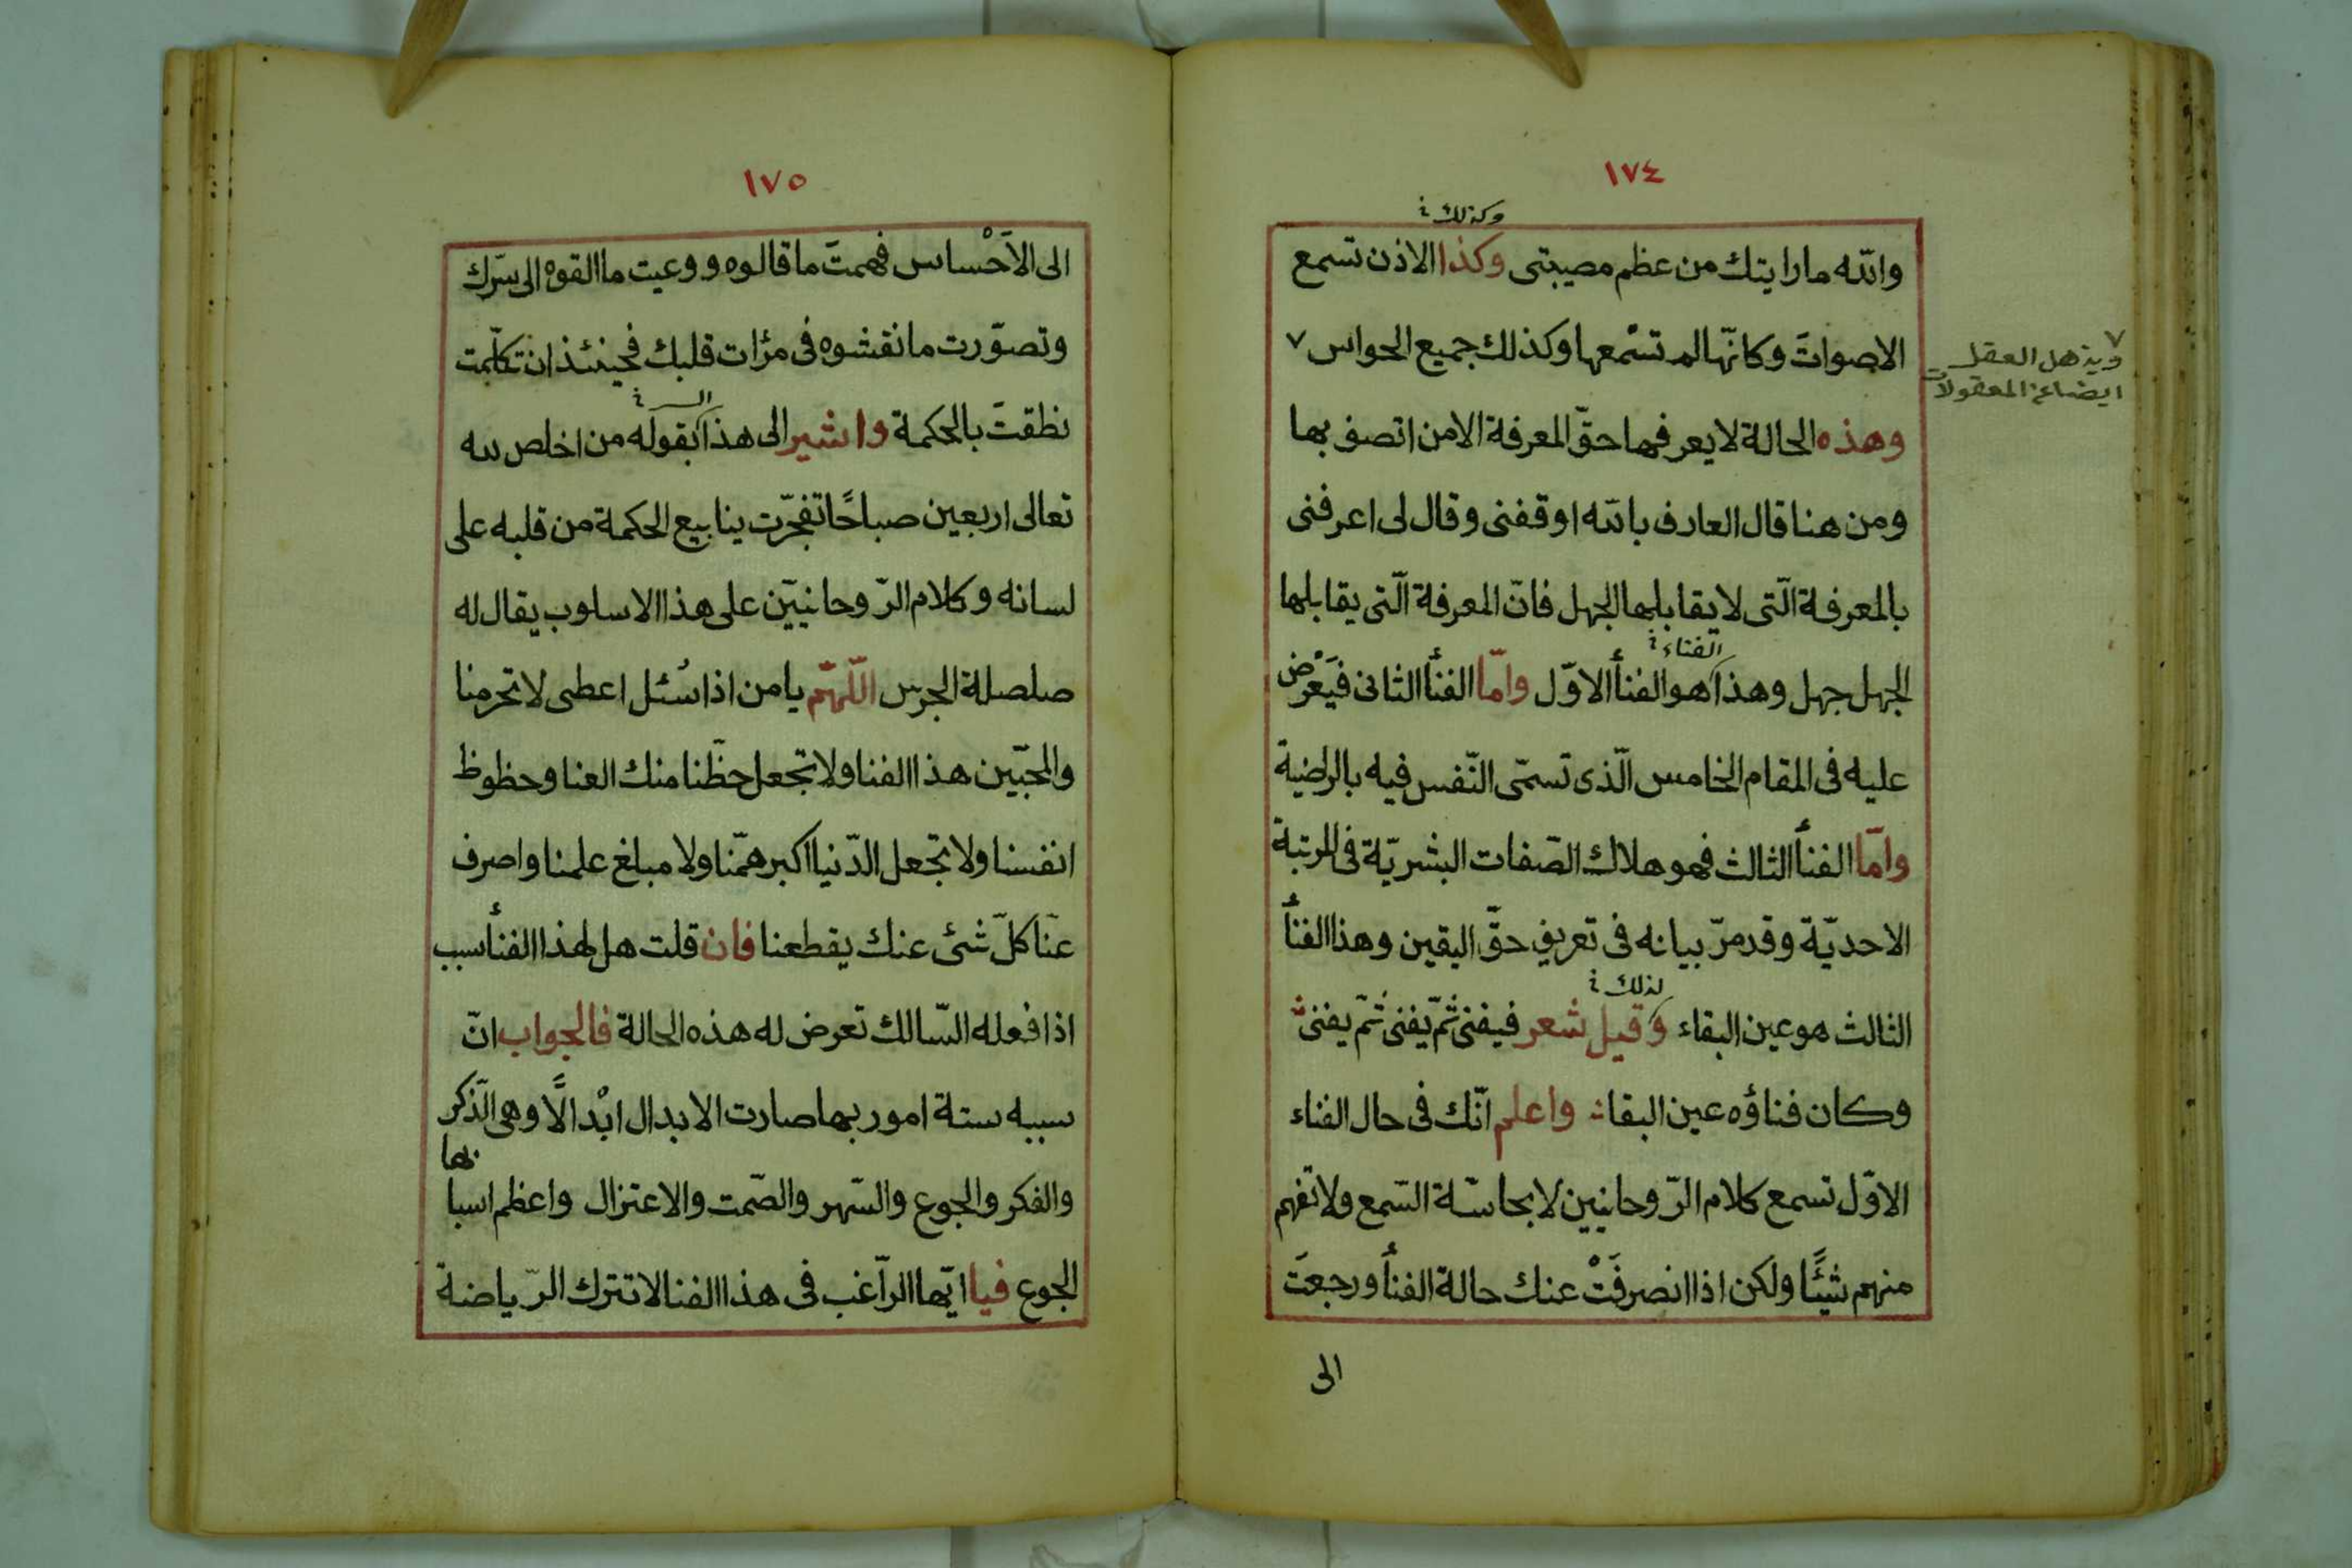 ١٧٤
وكذلك
والله ما رايتك من عظم مصيبتى وكذا الاذن تسمع
الاصواتَ وكانّها لم تسْمعها وكذلك جميع الحواس ٧
٧ ويذهل العقل
ايضا عن المعقولات
وهذه الحالة لا يعرفها حقّ المعرفة الا من اتصف بها
ومن هنا قال العارف بالله اوقفنى وقال لى اعرفنى
بالمعرفة الّتى لا يقابلها الجهل فانّ المعرفة الّتى يقابلها
الفناء
الجهل جهل وهذا هو الفنأ الاوّل وامّا الفنأ الثانى فيَعْرض
عليه فى المقام الخامس الّذى تسمّى النّفس فيه بالراضية
وامّا الفنأ الثالث فهو هلاك الصّفات البشريّة فى المرتبة
الاحديّة وقد مرّ بيانه فى تعريف حقّ اليقين وهذا الفنأ
لذلك
الثالث هو عين البقاء وقيل شعر فيفنى ثمّ يفنى ثمّ يفنى
وكان فناؤه عين البقا واعلم انّك فى حال الفناء
الاوّل تسمع كلام الرّوحانيين لا بحاسّة السّمع ولا تفهم
منهم شيئًا ولكن اذا انصرفَتْ عنك حالة الفنأ ورجعتَ
الى
١٧٥
الى الاَحْساس فهمتَ ما قالوه ووعيت ما القوه الى سرّك
وتصوّرت ما نقشوه فى مرٔات قلبك فحينئذ ان تكلّمت
نطقتَ بالحكمة واشير الى هذا بقوله من اخلص لله
تعالى اربعين صباحًا تفجّرت ينابيع الحكمة من قلبه على
لسانه وكلام الرّوحانيّين على هذا الاسلوب يقال له
صلصلة الجرس اللّهمّ يا من اذا سُئل اعطى لا تحرمنا
والمحبّين هذا الفنا ولا تجعل حظّنا منك العنا وحظوظ
انفسنا ولا تجعل الدّنيا اكبر همّنا ولا مبلغ علمنا واصرف
عنّا كلّ شئ عنك يقطعنا فان قلت هل لهذا الفنأ سبب
اذا فعله السّالك تعرض له هذه الحالة فالجواب انّ
سببه ستة امور بها صارت الابدال ابْدالاً وهى الذّكر
والفكر والجوع والسّهر والصّمت والاعتزال واعظم اسبابها
الجوع فيا ايّها الرّاغب فى هذا الفنا لا تترك الرّياضة